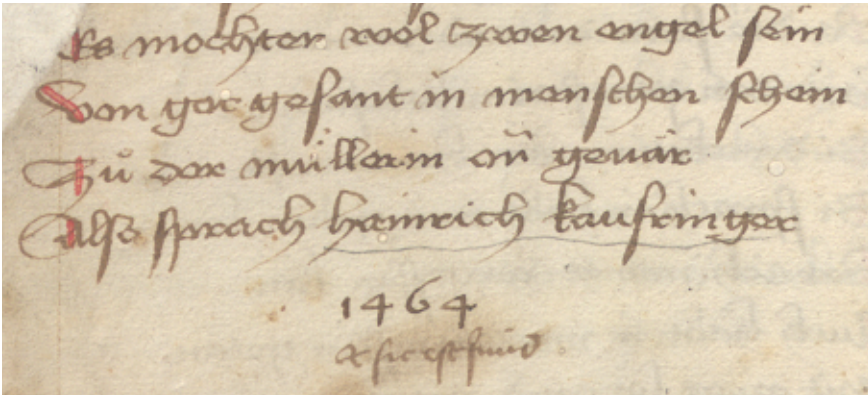 Es mochten wol zwen engel sein
Von got gesant in menschen schein
Zuͦ der müllerin on geuär
Also sprach hainrich kaufringer
1464
& sic est finis